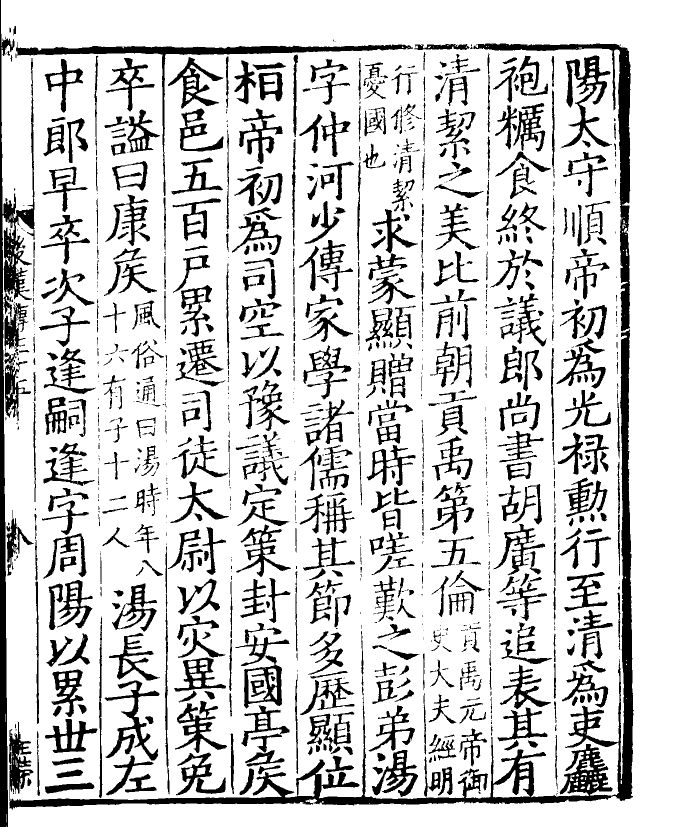 陽太守順帝初爲光禄勳行至清爲吏麤
袍糲食終於議郎尚書胡廣等追表其有
清絜之美比前朝貢禹第五倫貢禹元帝御史大夫經明
行修清絜憂國也求蒙顯贈當時皆嗟歎之彭弟湯
字仲河少傳家學諸儒稱其節多歷顯位
桓帝初爲司空以豫議定策封安國亭侯
食邑五百戸累遷司徒太尉以灾異策免
卒謚曰康侯風俗通曰湯時年八十六有子十二人湯長子成左
中郎早卒次子逢嗣逢字周陽以累丗三
後漢傳三十五
八